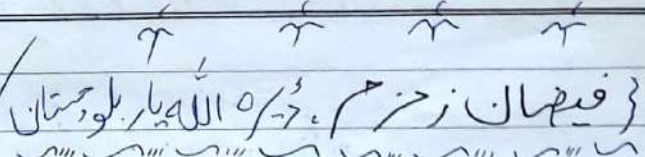 { فیضان زمزم، ڈیرہ اللہ یار بلوچستان